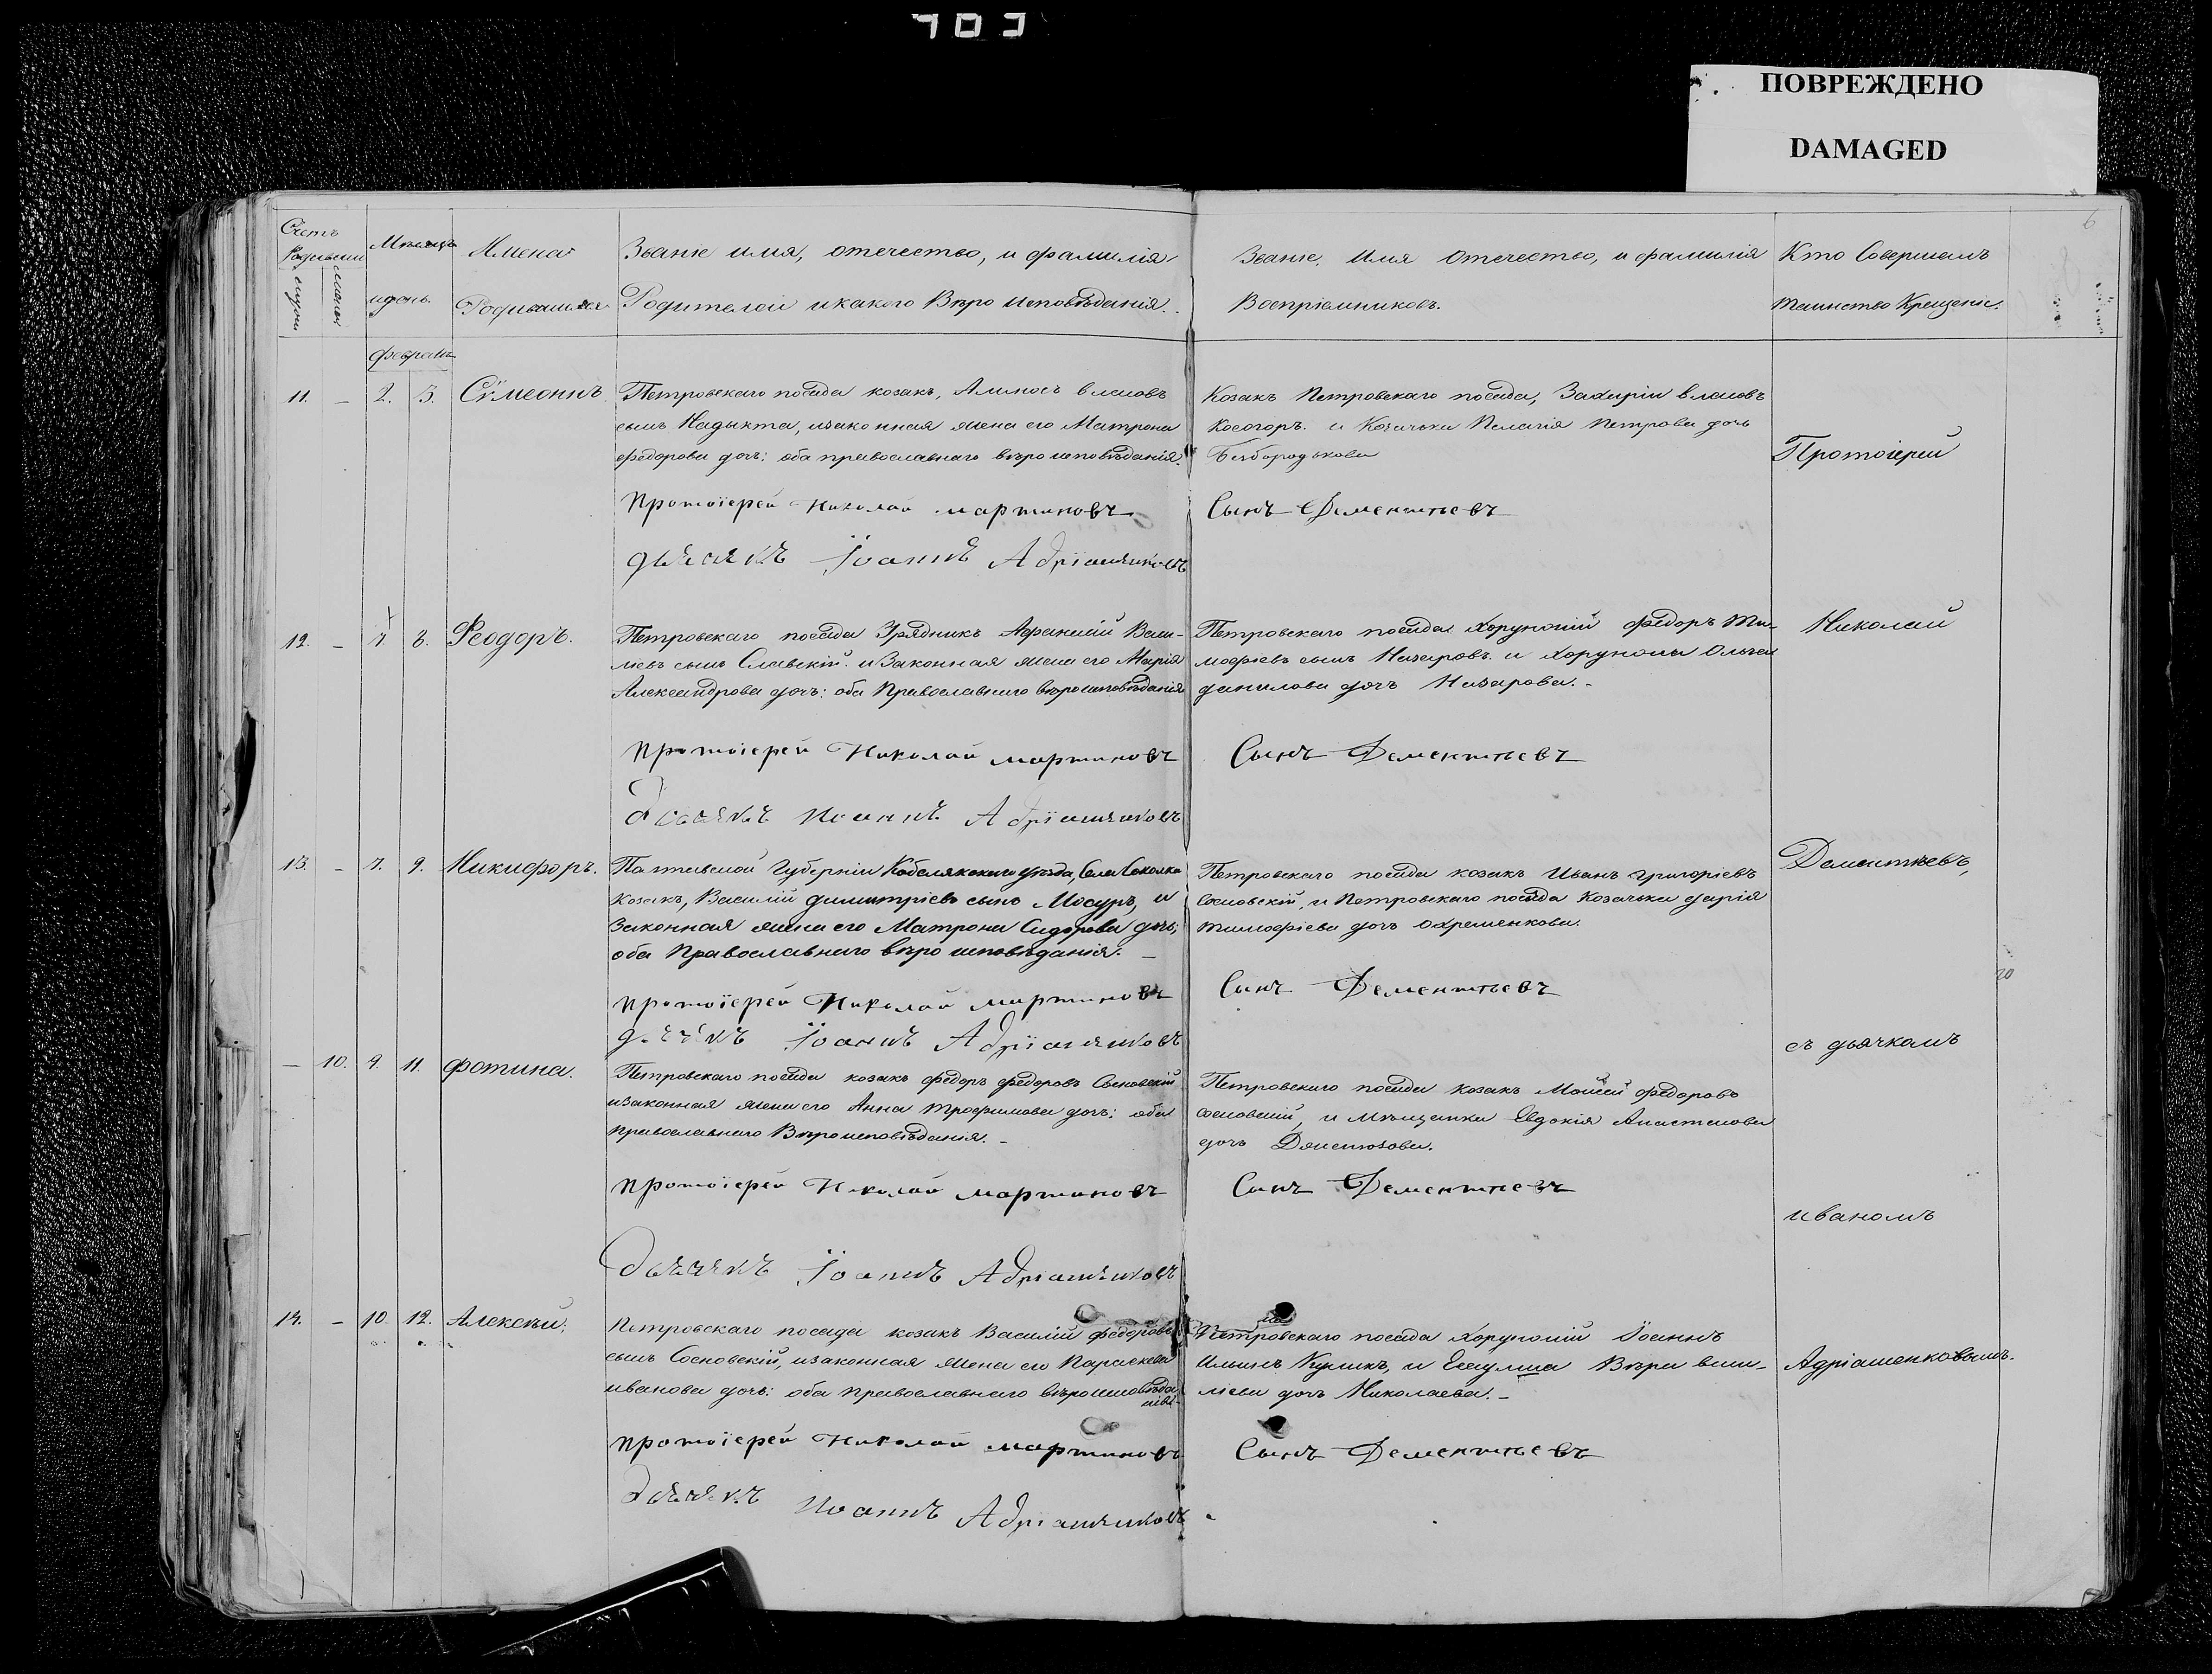 ПОВРЕЖДЕНО
DAMAGED
6
Счетъ
Мѣсяцъ
и день
Имена
Родившихся
Званіе имя, отечество, и фамилія
Родителей и какого Вѣро исповѣданія.
Званіе, Имя отечество, и фамилія
Воспріемниковъ.
Кто Совершалъ
таинство Крещенія.
Февраль
11. - 2. 3. Сѵмеонъ.
Петровскаго посада козакъ, Власовъ
сынъ Надыкта, изаконная жена его Матрона
федорова дочь: оба православнаго вѣро исповѣданія.
Козакъ Петровскаго посада, Захарія власовъ
Косогоръ. и Козачька Пелагія Петрова дочь
Безбородькова
Протоіерей
Протоіерей Николай мартиновъ Сынъ Дементьевъ
дьячикъ Іоаннъ Адріашенковъ
12. - 7. 8. Феодоръ.
Петровскаго посада Урядникъ Афанасій Васи-
ліевъ сынъ Славскій. и Законная жена его Марія
Александрова дочь: оба Православнаго вѣроисповѣданія
Петровскаго посада Хорунжій федоръ Ти-
мофіевъ сынъ Назаровъ. и Хорунжша Ольга
данилова дочь Назарова. -
Николай
Протоіерей Николай мартиновъ Сынъ Дементьевъ
Дьячикъ Иоаннъ Адріашенковъ
13. - 7. 9. Никифоръ.
Полтавской Губерніи Кобелякскаго уѣзда, Села Соколка
Козакъ, Василій димитріевъ сынъ Мосуръ, и
Законная жена его Матрона Сидорова дочь;
оба Православнаго вѣро исповѣданія. -
Петровскаго посада козакъ Иванъ григоріевъ
Сосновскій, и Петровскаго посада Козачька дарія
тимофіева дочь Охременкова.
Дементьевъ,
20
Протоіерей Николай мартиновъ Сынъ Дементьевъ
дьячикъ Іоаннъ Адріашенковъ
съ дьячкомъ
- 10. 9. 11. Фотина.
Петровскаго посада козакъ федоръ федоровъ Сосновскій
изаконная жена его Анна трофимова дочь: оба
православнаго Вѣроисповѣданія. -
Петровскаго посада козакъ Моисей федоровъ
сосновскій, и мѣщанка Евдокія Анастасова
дочь
Протоіерей Николай мартиновъ Сынъ Дементьевъ
иваномъ
Дьячикъ Іоаннъ Адріашенковъ
14. - 10. 12. Алексѣй.
Петровскаго посада козакъ Василій федоровъ
сынъ Сосновскій, изаконная жена его Параскева
иванова дочь: оба православнаго вѣроисповѣда
нія. -
Петровскаго посада Хорунжій Іоаннъ
Ильинъ Куликъ, и Есаулша Вѣра васи-
ліева дочь Николаева. -
Адріашенковымъ.
Протоіерей Николай мартиновъ Сынъ Дементьевъ
Дьячикъ Иоаннъ Адріашенковъ